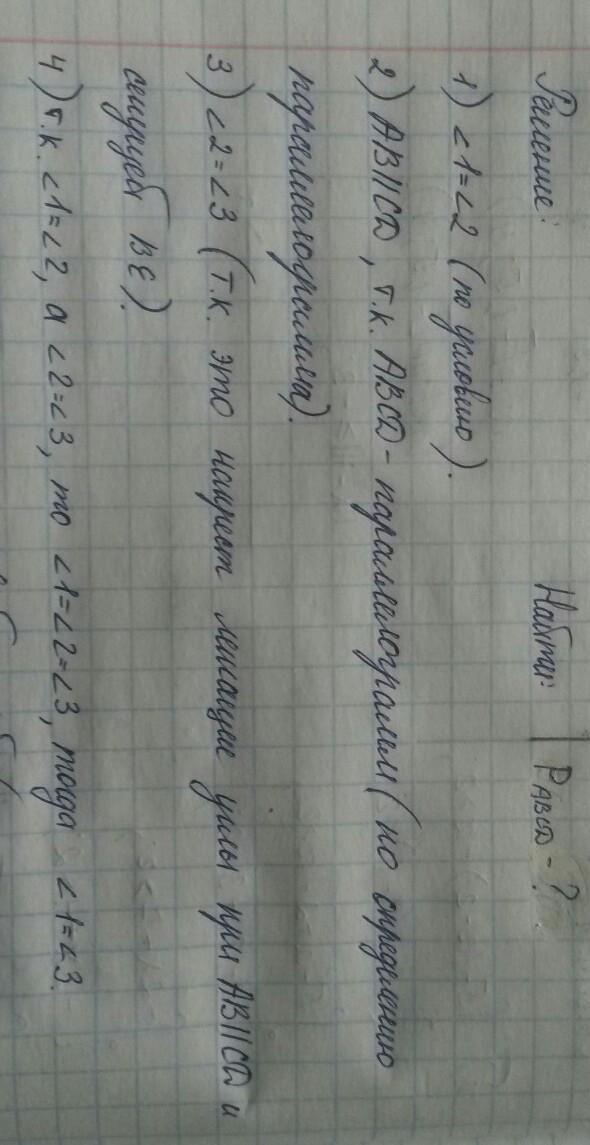 Найти: P ABCD - ?
Решение:
1) <1=<2 (по условию).
2) AB||CD, т.к. ABCD - параллелограмм (по определению
параллелограмма).
3) <2=<3 (т.к. это накрест лежащие углы при AB||CD и
секущей BE).
4) т.к. <1=<2, а <2=<3, то <1=<2=<3, тогда <1=<3.